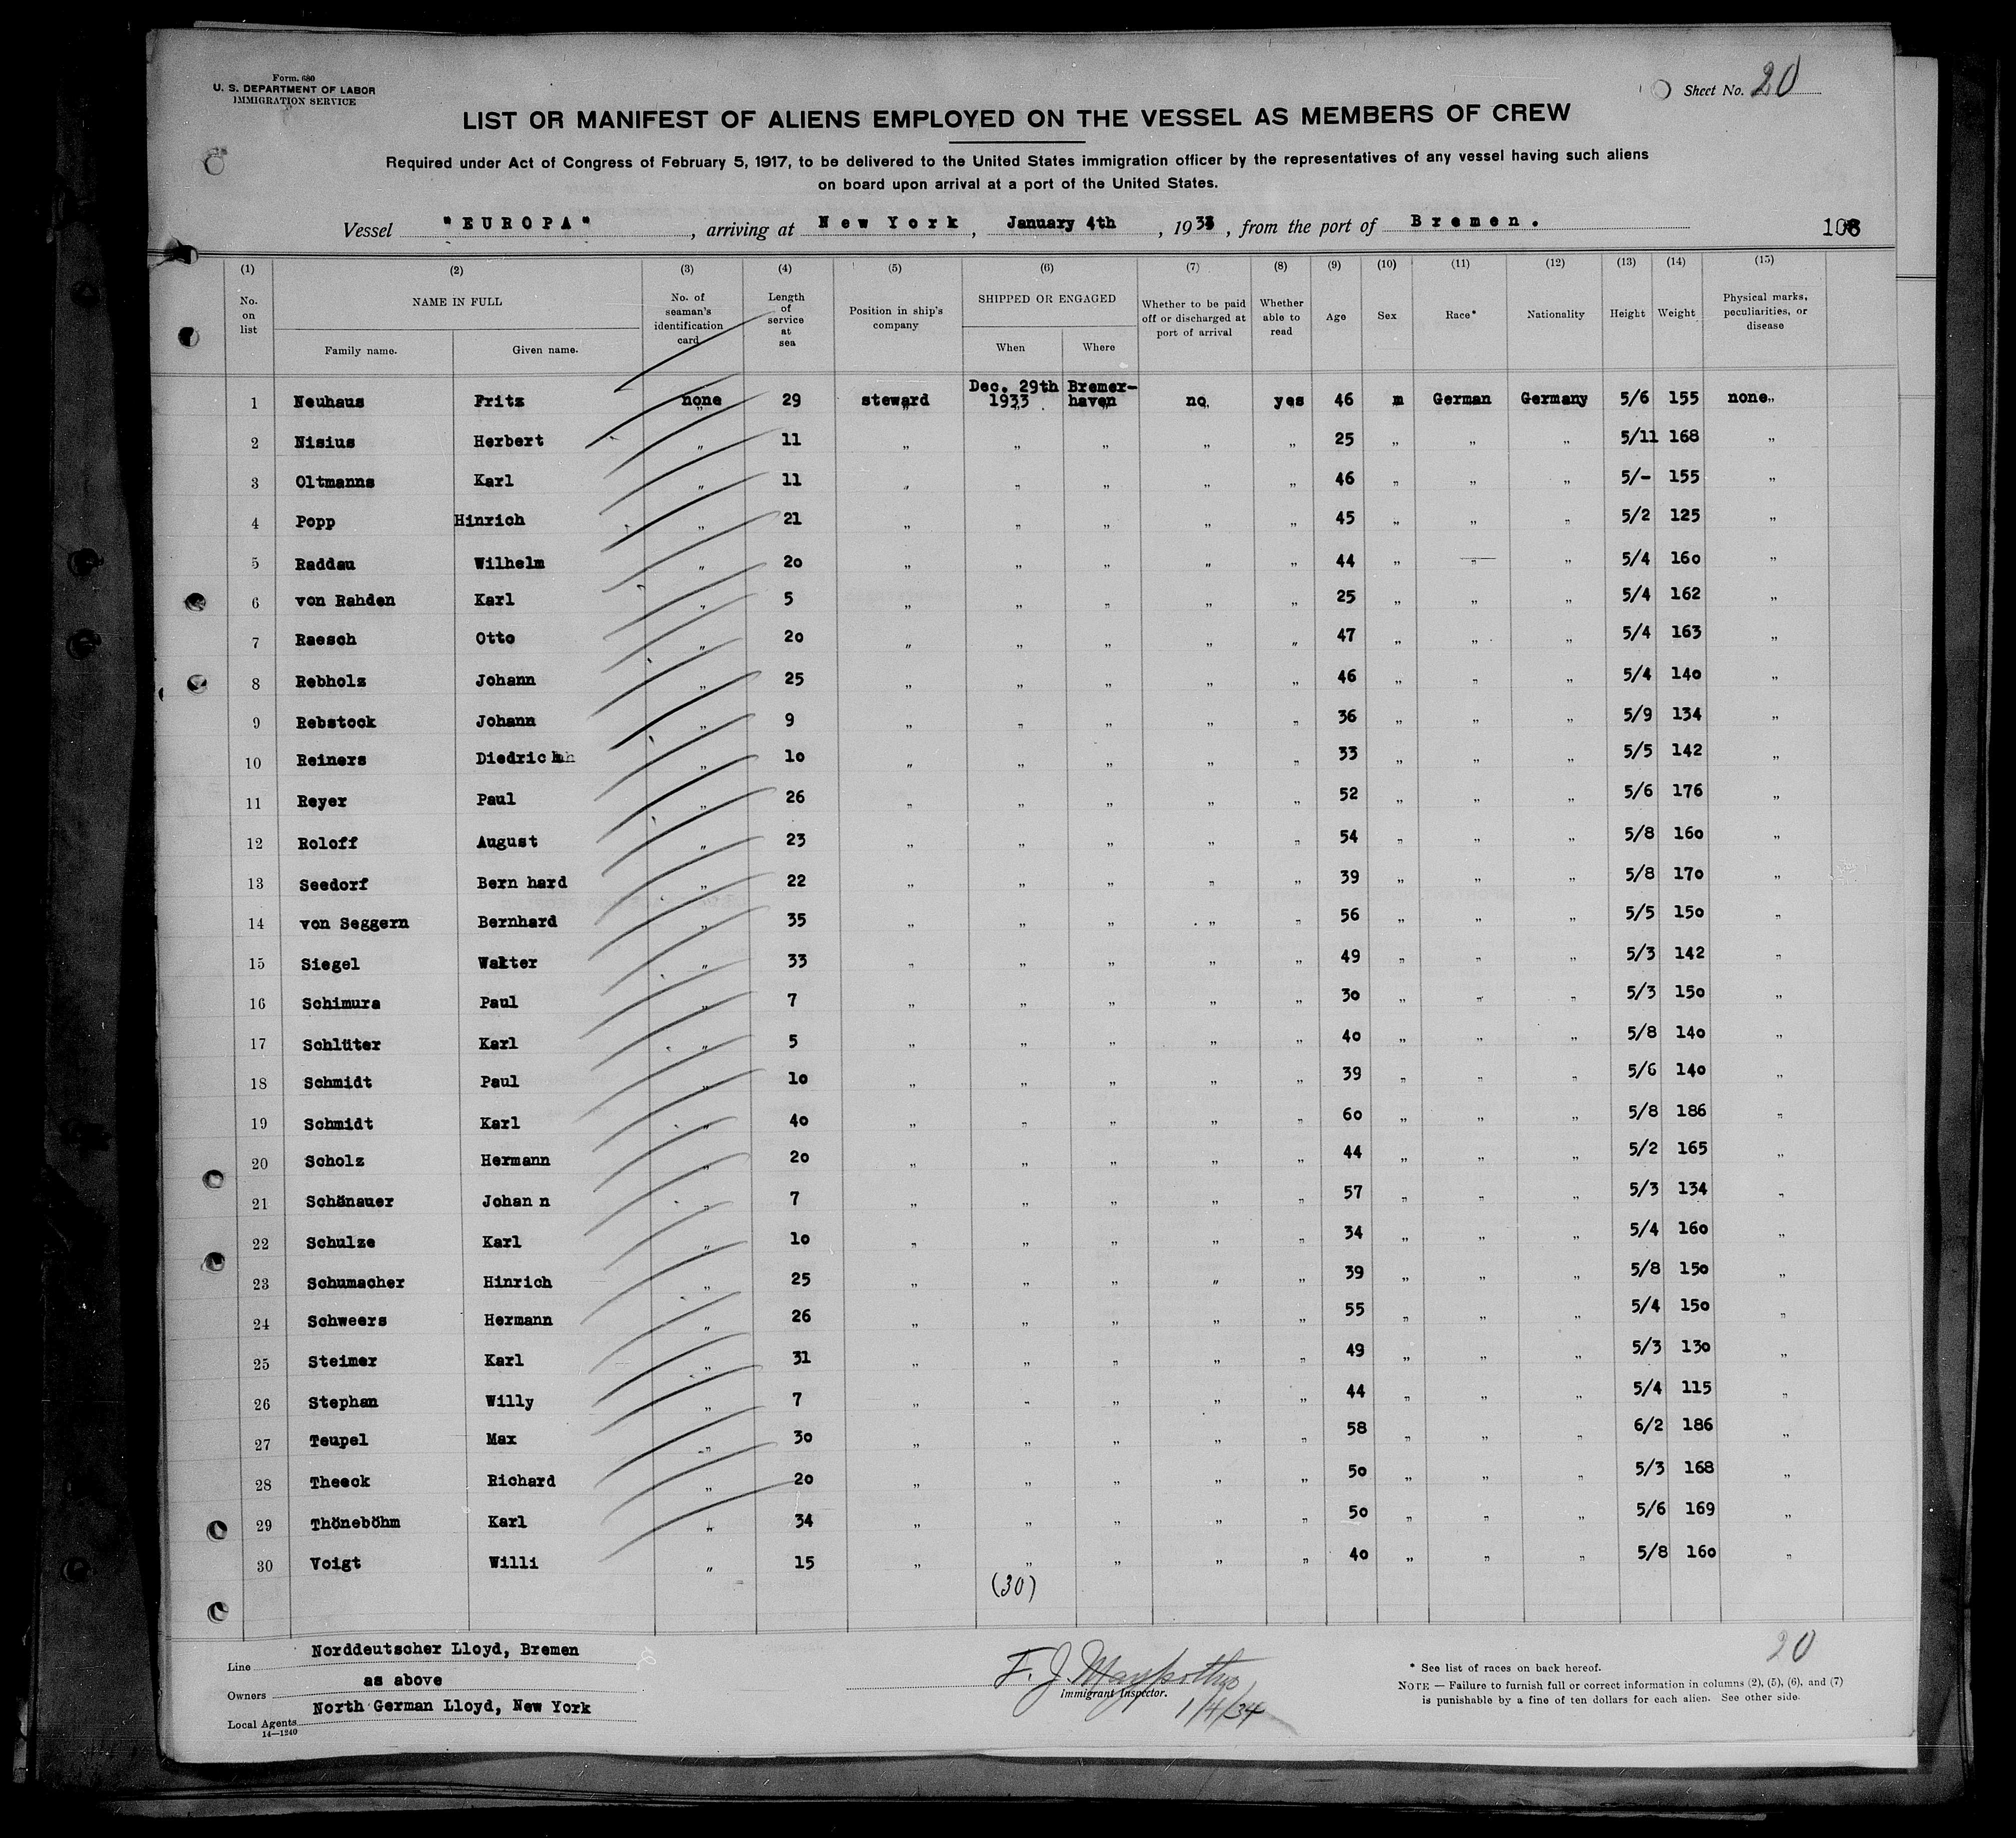 Form. 680
U. S. DEPARTMENT OF LABOR
IMMIGRATION SERVICE
Sheet No. 20
LIST OR MANIFEST OF ALIENS EMPLOYED ON THE VESSEL AS MEMBERS OF CREW
Required under Act of Congress of February 5, 1917, to be delivered to the United States immigration officer by the representatives of any vessel having such aliens
on board upon arrival at a port of the United States.
Vessel "EUROPA", arriving at New York, January 4th, 193 , from the port of Bremen.
(1) (2) (3) (4) (5) (6) (7) (8) (9) (10) (11) (12) (13) (14) (15)
No. on list NAME IN FULL Family name. Given name. No. of seaman's identification card Length of service at sea Position in ship's company SHIPPED OR ENGAGED When Where Whether to be paid off or discharged at port of arrival Whether able to read Age Sex Race* Nationality Height Weight Physical marks, peculiarities, or disease
1 Neuhaus Fritz none 29 steward Dec. 29th 1933 Bremerhaven no yes 46 m German Germany 5/6 155 none
2 Nisius Herbert " 11 " " " " " 25 " " " 5/11 168 "
3 Oltmanns Karl " 11 " " " " " 46 " " " 5/- 155 "
4 Popp Hinrich " 21 " " " " " 45 " " " 5/2 125 "
5 Raddau Wilhelm " 20 " " " " " 44 " " " 5/4 160 "
6 von Rahden Karl " 5 " " " " " 25 " " " 5/4 162 "
7 Raesch Otto " 20 " " " " " 47 " " " 5/4 163 "
8 Rebholz Johann " 25 " " " " " 46 " " " 5/4 140 "
9 Rebstock Johann " 9 " " " " " 36 " " " 5/9 134 "
10 Reiners Diedrich " 10 " " " " " 33 " " " 5/5 142 "
11 Reyer Paul " 26 " " " " " 52 " " " 5/6 176 "
12 Roloff August " 23 " " " " " 54 " " " 5/8 160 "
13 Seedorf Bern hard " 22 " " " " " 39 " " " 5/8 170 "
14 von Seggern Bernhard " 35 " " " " " 56 " " " 5/5 150 "
15 Siegel Walter " 33 " " " " " 49 " " " 5/3 142 "
16 Schimura Paul " 7 " " " " " 30 " " " 5/3 150 "
17 Schlüter Karl " 5 " " " " " 40 " " " 5/8 140 "
18 Schmidt Paul " 10 " " " " " 39 " " " 5/6 140 "
19 Schmidt Karl " 40 " " " " " 60 " " " 5/8 186 "
20 Scholz Hermann " 20 " " " " " 44 " " " 5/2 165 "
21 Schönauer Johan n " 7 " " " " " 57 " " " 5/3 134 "
22 Schulze Karl " 10 " " " " " 34 " " " 5/4 160 "
23 Schumacher Hinrich " 25 " " " " " 39 " " " 5/8 150 "
24 Schweers Hermann " 26 " " " " " 55 " " " 5/4 150 "
25 Steimer Karl " 31 " " " " " 49 " " " 5/3 130 "
26 Stephan Willy " 7 " " " " " 44 " " " 5/4 115 "
27 Teupel Max " 30 " " " " " 58 " " " 6/2 186 "
28 Theeck Richard " 20 " " " " " 50 " " " 5/3 168 "
29 Thöneböhm Karl " 34 " " " " " 50 " " " 5/6 169 "
30 Voigt Willi " 15 " " " " " 40 " " " 5/8 160 "
(30)
20
Line Norddeutscher Lloyd, Bremen
Owners as above
Local Agents North German Lloyd, New York
14—1240
F. J.
Immigrant Inspector.
1/4/34
* See list of races on back hereof.
NOTE — Failure to furnish full or correct information in columns (2), (5), (6), and (7)
is punishable by a fine of ten dollars for each alien. See other side.